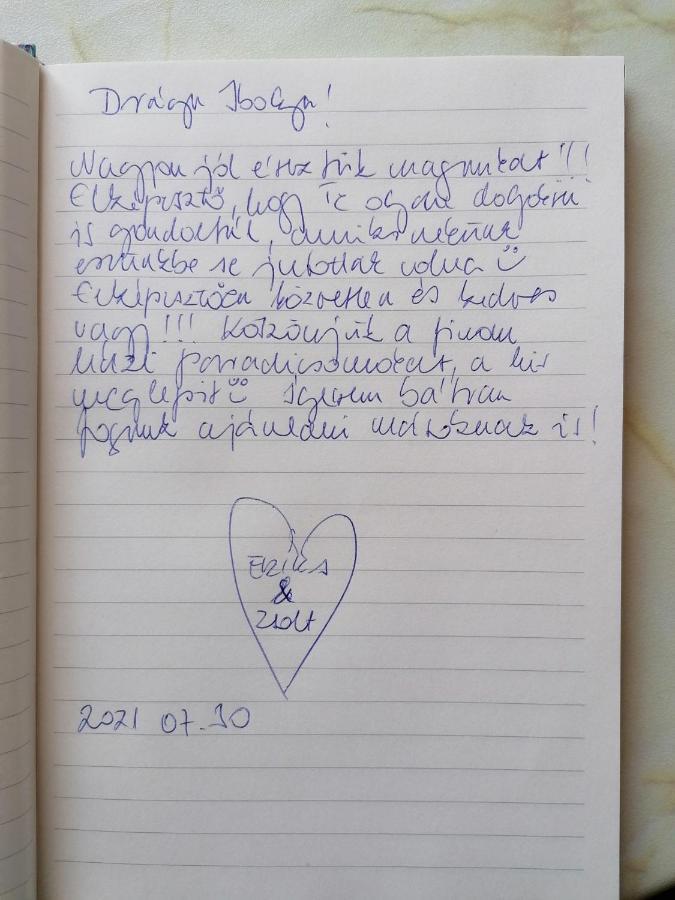 Drága Ibolya!
Nagyon jól éreztük magunkat!!!
Elképesztő, hogy Te olyan dolgokra
is gondoltál, amik nekünk
eszünkbe se jutottak volna ☺
Elképesztően közvetlen és kedves
vagy!!! Köszönjük a finom
házi paradicsomokat, a kis
meglepit ☺ Szívesen bátran
fogunk ajánlani másoknak is!
Erika
&
Zsolt
2021 07.30